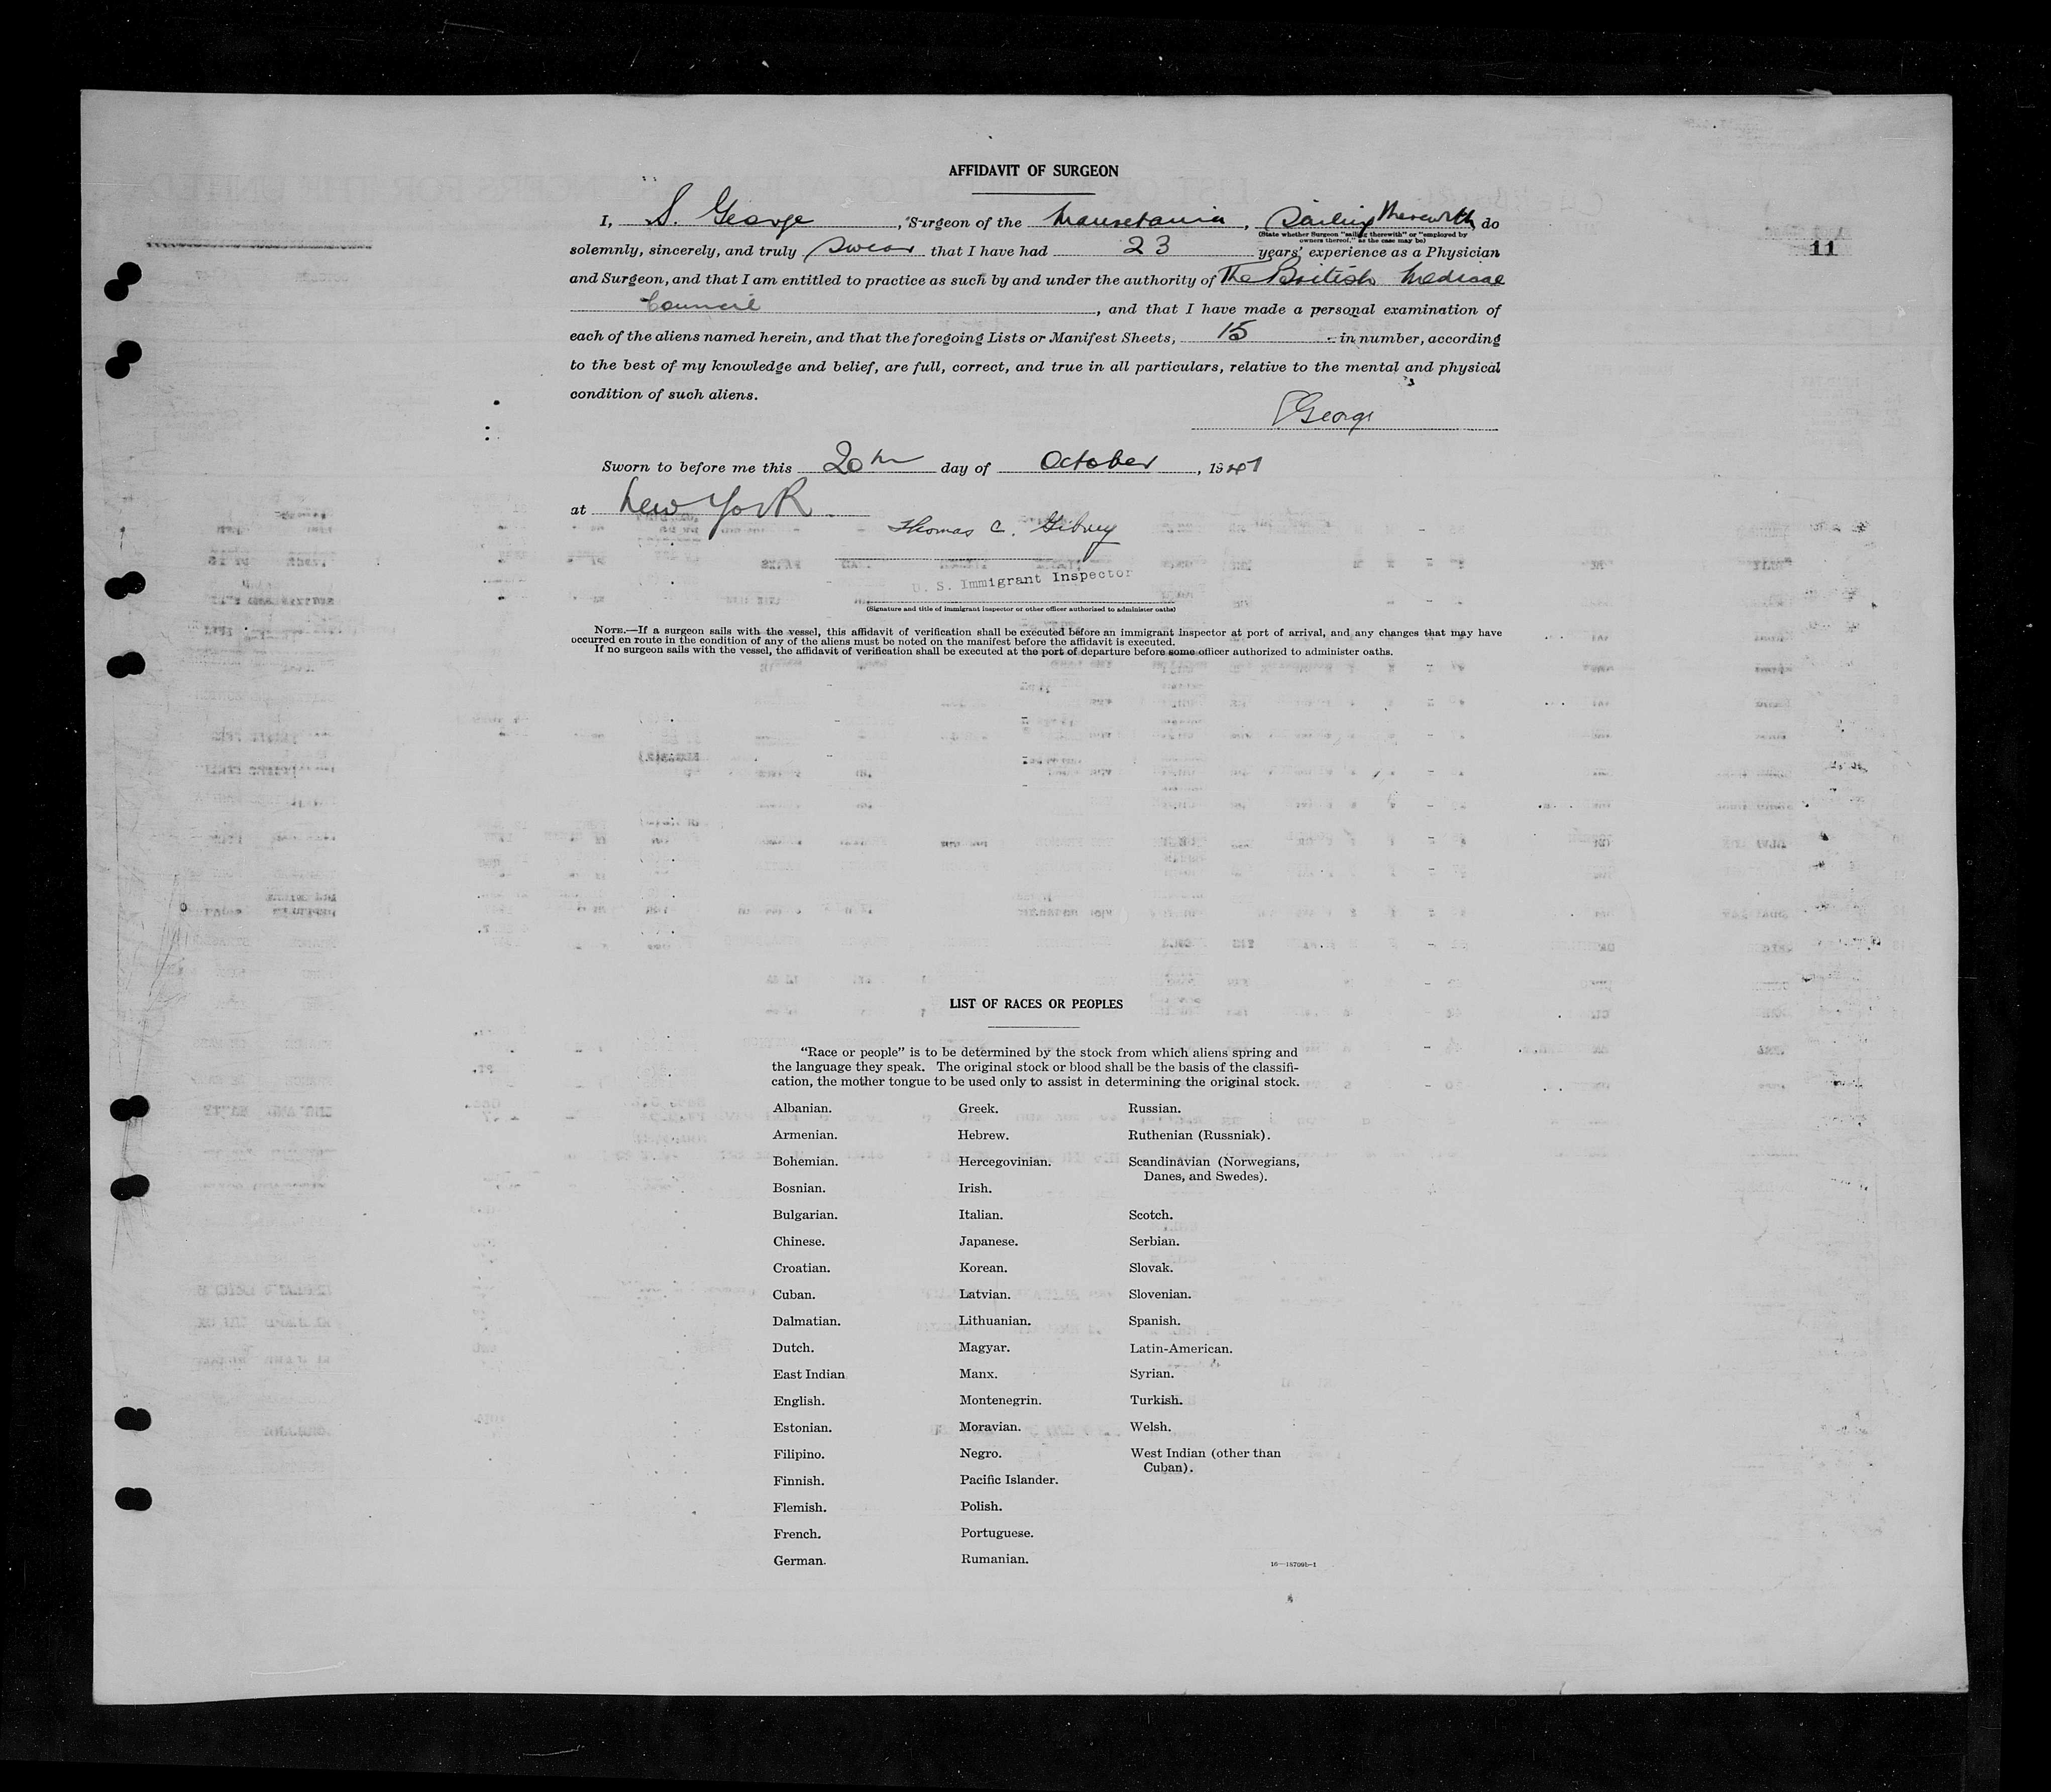 AFFIDAVIT OF SURGEON
I, S. George, Surgeon of the Mauretania, Sailing therewith do
(State whether Surgeon "sailing therewith" or "employed by
owners thereof," as the case may be)
11
solemnly, sincerely, and truly swear that I have had 23 years' experience as a Physician
and Surgeon, and that I am entitled to practice as such by and under the authority of The British Medical
Council, and that I have made a personal examination of
each of the aliens named herein, and that the foregoing Lists or Manifest Sheets, 15 in number, according
to the best of my knowledge and belief, are full, correct, and true in all particulars, relative to the mental and physical
condition of such aliens.
S George
Sworn to before me this 20th day of October, 1947
at New York
Thomas C. Gibney
U. S. Immigrant Inspector
(Signature and title of immigrant inspector or other officer authorized to administer oaths)
NOTE.—If a surgeon sails with the vessel, this affidavit of verification shall be executed before an immigrant inspector at port of arrival, and any changes that may have
occurred en route in the condition of any of the aliens must be noted on the manifest before the affidavit is executed.
If no surgeon sails with the vessel, the affidavit of verification shall be executed at the port of departure before some officer authorized to administer oaths.
LIST OF RACES OR PEOPLES
"Race or people" is to be determined by the stock from which aliens spring and
the language they speak. The original stock or blood shall be the basis of the classifi-
cation, the mother tongue to be used only to assist in determining the original stock.
Albanian.
Armenian.
Bohemian.
Bosnian.
Bulgarian.
Chinese.
Croatian.
Cuban.
Dalmatian.
Dutch.
East Indian
English.
Estonian.
Filipino.
Finnish.
Flemish.
French.
German.
Greek.
Hebrew.
Hercegovinian.
Irish.
Italian.
Japanese.
Korean.
Latvian.
Lithuanian.
Magyar.
Manx.
Montenegrin.
Moravian.
Negro.
Pacific Islander.
Polish.
Portuguese.
Rumanian.
Russian.
Ruthenian (Russniak).
Scandinavian (Norwegians,
Danes, and Swedes).
Scotch.
Serbian.
Slovak.
Slovenian.
Spanish.
Latin-American.
Syrian.
Turkish.
Welsh.
West Indian (other than
Cuban).